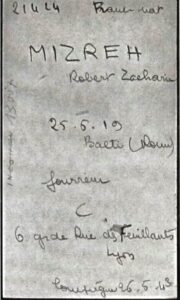 21424
MIZREH
Robert Zacharia
25.5.19
Balti (Roum)
fourreur
C
6 gde Rue des Feuillants
Lyon
Compiègne 26.5.43